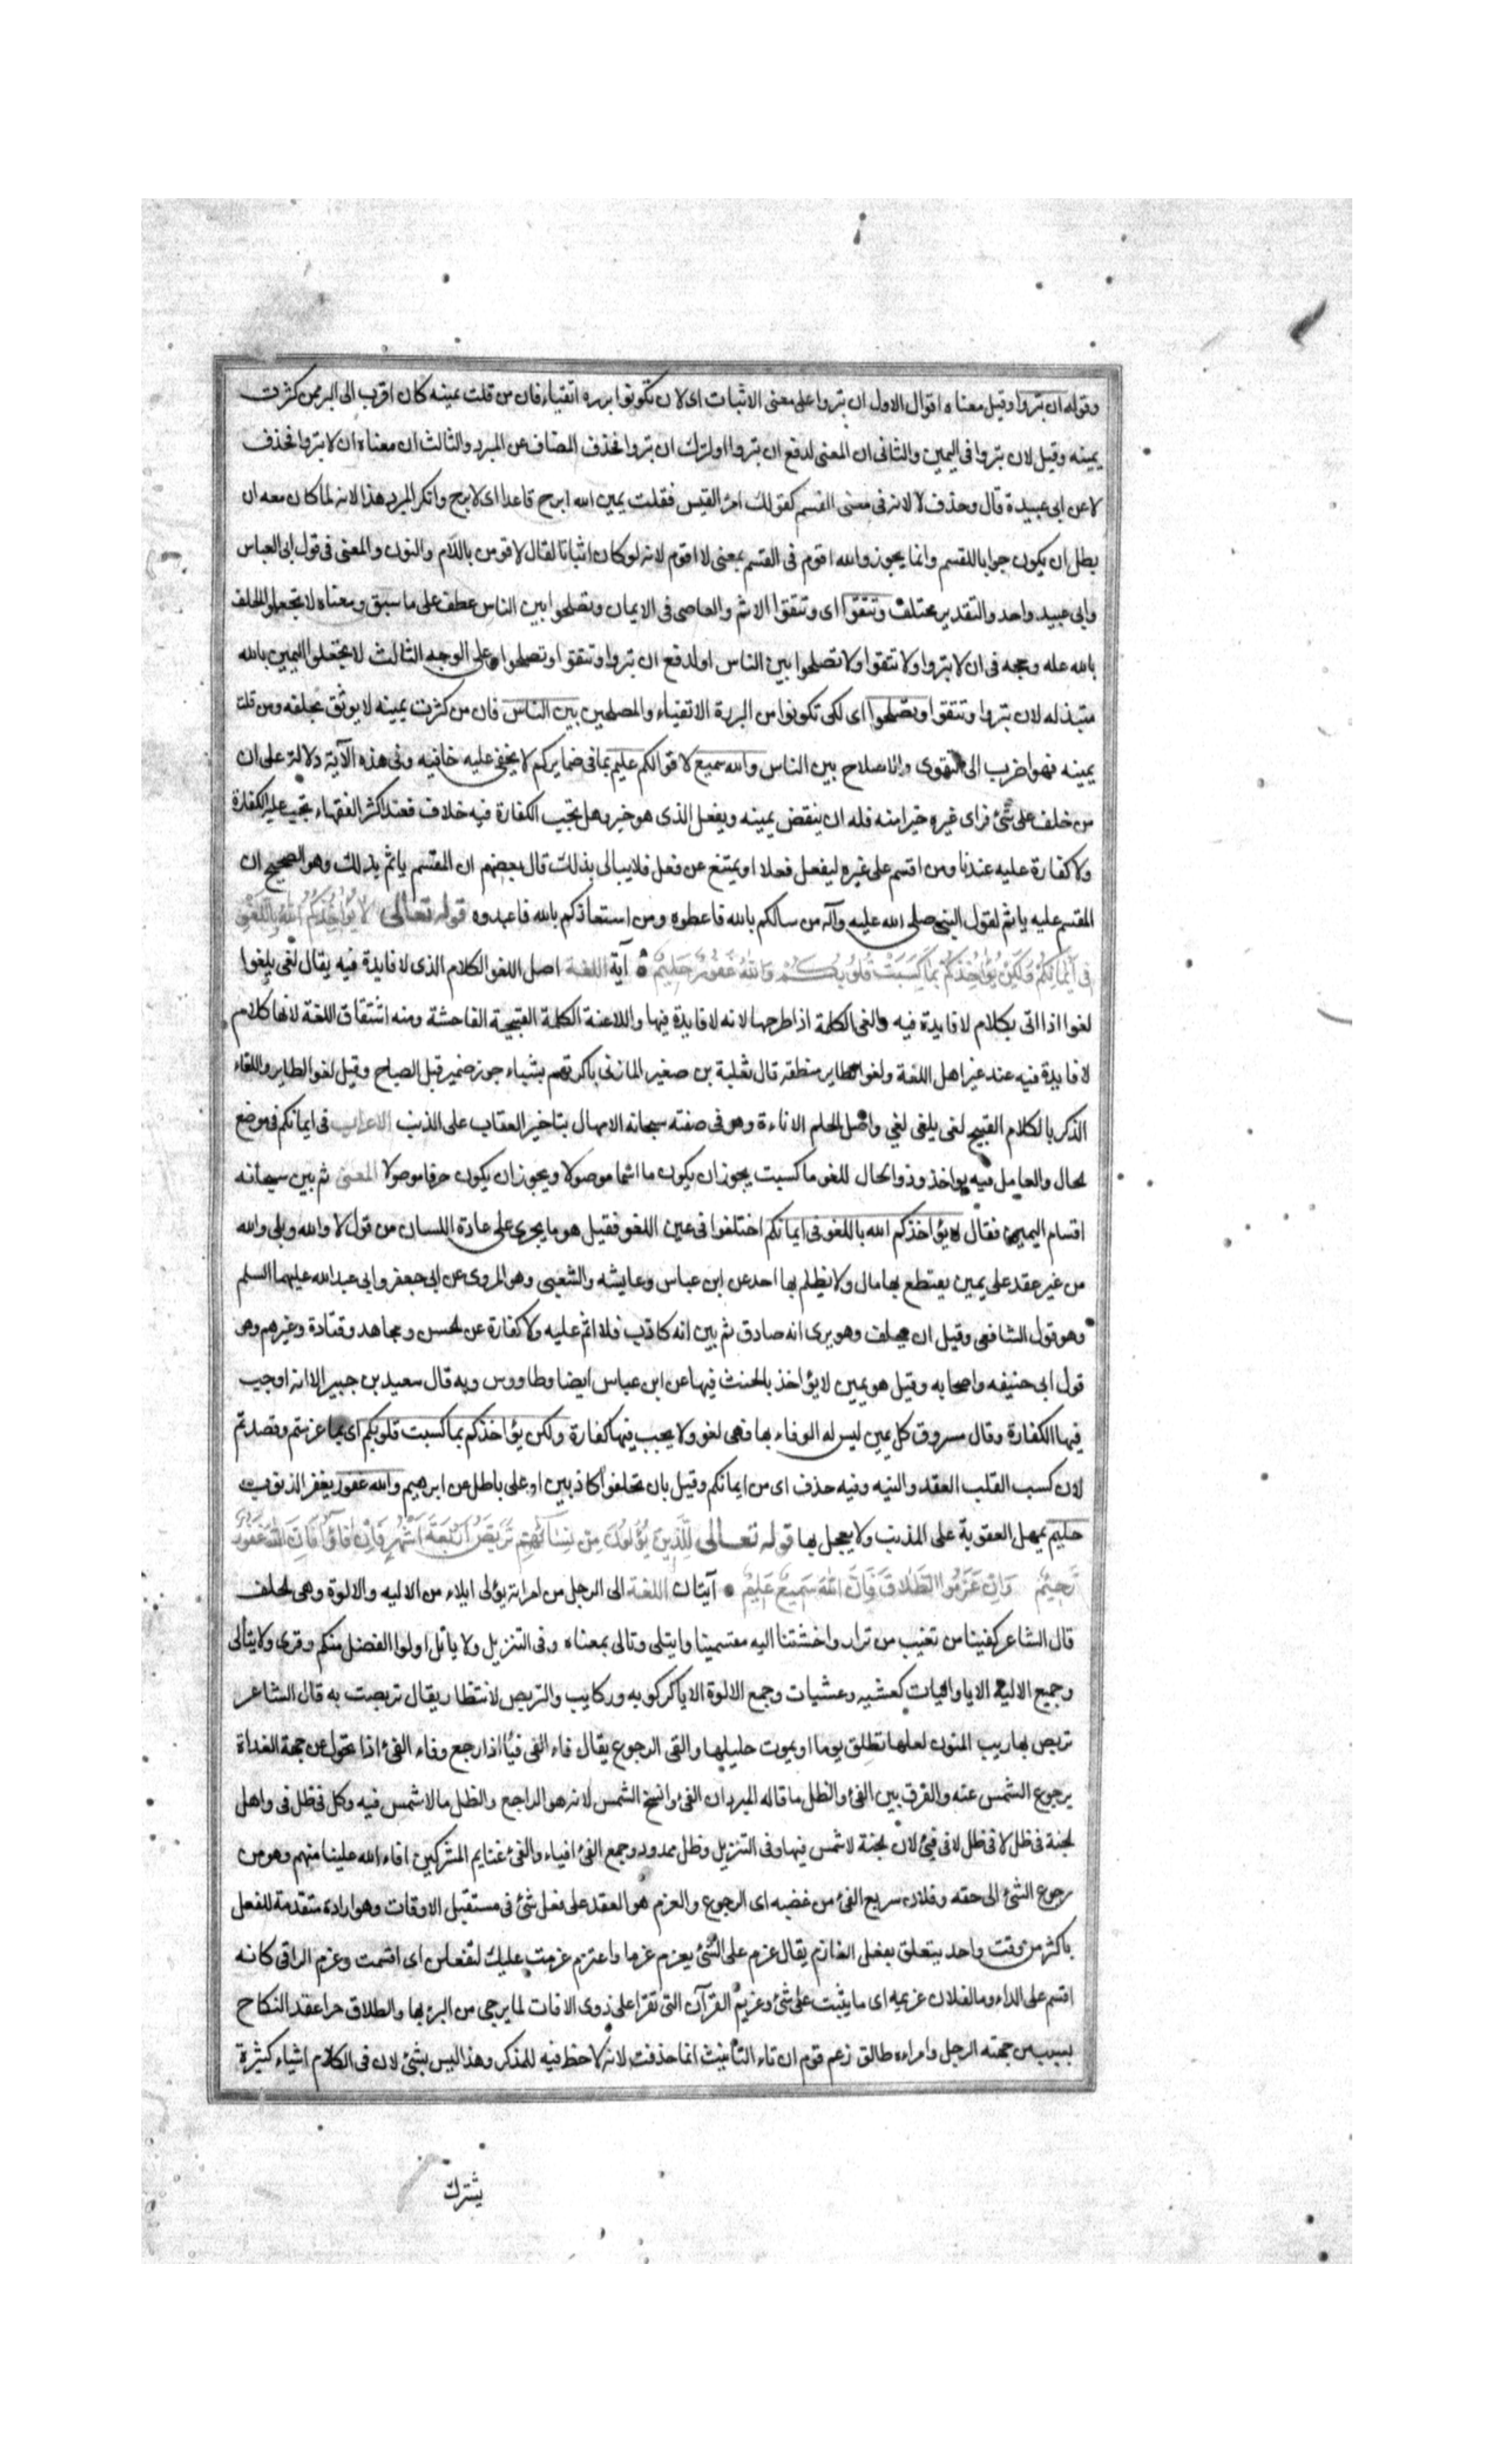 وقوله ان تبروا وقيل معناه اقوال الاول ان تبروا على معنى الاثبات اى لان تكونوا بررة اتقياء فان من قلت يمينه كان اقرب الى البر ممن كثرت
يمينه وقيل لان تبروا فى اليمين والثانى ان المعنى لدفع ان تبروا اولترك ان تبروا فحذف المضاف عن المبرد والثالث ان معناه ان لا تبروا فحذف
لا عن ابى عبيدة قال وحذف لا لانه فى معنى القسم كقولك امرؤ القيس فقلت يمين الله ابرح قاعدا اى لا ابرح وانكر المبرد هذا لانه لما كان معه ان
بطل ان يكون جوابا للقسم وانما يجوز والله اقوم فى القسم بمعنى لا اقوم لانه لو كان اثباتا لقال لاقومن باللام والنون والمعنى فى قول ابى العباس
وابى عبيد واحد والتقدير مختلف وتتقوا اى وتتقوا الاثم والمعاصى فى الايمان وتصلحوا بين الناس عطف على ما سبق ومعناه لا تجعلوا الحلف
بالله عله وحجه فى ان لا تبروا ولا تتقوا ولا تصلحوا بين الناس او لدفع ان تبروا وتتقوا وتصلحوا وعلى الوجه الثالث لا تجعلوا اليمين بالله
مبتذله لان تبروا وتتقوا وتصلحوا اى لكى تكونوا من البررة الاتقياء والمصلحين بين الناس فان من كثرت يمينه لا يوثق بحلفه ومن قلت
يمينه فهو اقرب الى التقوى والاصلاح بين الناس والله سميع لاقوالكم عليم بما فى ضمايركم لا يخفى عليه خافيه وفى هذه الآية دلالة على ان
من حلف على شئ فراى غيره خيرا منه فله ان ينقض يمينه ويفعل الذى هو خير وهل تجب الكفارة فيه خلاف فعند اكثر الفقهاء تجب عليه الكفارة
ولا كفارة عليه عندنا ومن اقسم على غيره ليفعل فعلا او يمتنع عن فعل فلا يبالى بذلك قال بعضهم ان المقسم ياثم بذلك وهو الصحيح ان
المقسم عليه ياثم لقول النبى صلى الله عليه وآله من سالكم بالله فاعطوه ومن استعاذكم بالله فاعيدوه قوله تعالى لَا يُؤَاخِذُكُمُ اللَّهُ بِاللَّغْوِ
فِى أَيْمَانِكُمْ وَلَكِنْ يُؤَاخِذُكُمْ بِمَا كَسَبَتْ قُلُوبُكُمْ وَاللَّهُ غَفُورٌ حَلِيمٌ آية اللغة اصل اللغو الكلام الذى لا فايدة فيه يقال لغى يلغوا
لغوا اذا اتى بكلام لا فايدة فيه والغى الكلمة اذا طرحها لانه لا فايدة فيها واللاغية الكلمة القبيحة الفاحشة ومنه اشتقاق اللغة لانها كلام
لا فايدة فيه عند غير اهل اللغة ولغوا لطاير منطقه قال ثعلبة بن صغير المازنى باكرتهم بشباء جوز ضمير قبل الصباح وقيل لغو الطاير واللقاء
الذكر بالكلام القبيح لغى يلغى لغي واصل الحلم الاناءة وهو فى صفته سبحانه الامهال بتاخير العقاب على الذنب الاعراب فى ايمانكم فى موضع
لحال والعامل فيه يواخذ وذو الحال للغو ما كسبت يجوز ان يكون ما اسما موصولا ويجوز ان يكون حرفا موصولا المعنى ثم بين سبحانه
اقسام اليمين فقال لا يؤاخذكم الله باللغو فى ايمانكم اختلفوا فى عين اللغو فقيل هو ما يجرى على عادة اللسان من قول لا والله وبلى والله
من غير عقد على يمين يقتطع بها مال ولا يظلم بها احد عن ابن عباس وعايشه والشعبى وهو المروى عن ابى جعفر وابى عبد الله عليهما السلم
وهو قول الشافعى وقيل ان يحلف وهو يرى انه صادق ثم يبين انه كاذب فلا اثم عليه ولا كفارة عن لحسن ومجاهد وقتادة وغيرهم وهو
قول ابى حنيفه واصحابه وقيل هو يمين لا يؤاخذ بالحنث فيها عن ابن عباس ايضا وطاووس وبه قال سعيد بن جبير الا انه اوجب
فيها الكفارة وقال مسروق كل يمين ليس له الوفاء بها فهى لغو ولا يجب فيها كفارة ولكن يؤاخذكم بما كسبت قلوبكم اى بما عزمتم وقصدتم
لان كسب القلب العقد والنيه وفيه حذف اى من ايمانكم وقيل بان تحلفوا كاذبين او على باطل عن ابرهيم والله غفور يغفر الذنوب
حليم يمهل العقوبة على المذنب ولا يعجل بها قوله تعالى لِلَّذِينَ يُؤْلُونَ مِنْ نِسَائِهِمْ تَرَبُّصُ أَرْبَعَةِ أَشْهُرٍ فَإِنْ فَاؤُا فَإِنَّ اللَّهَ غَفُورٌ
رَحِيمٌ وَإِنْ عَزَمُوا الطَّلَاقَ فَإِنَّ اللَّهَ سَمِيعٌ عَلِيمٌ آيتان اللغة الى الرجل من امراته يؤلى ايلاء من الاليه والالوة وهى لحلف
قال الشاعر كفينا من تغيب من تراب واخنثنا اليه مقسمينا وايتلى وتالى بمعناه وفى التنزيل ولا ياتل اولوا الفضل منكم وقرى ولا يتالى
وجميع الاليه الايا واليات كعشيه وعشيات وجمع الالوة الايا كركوبه وركايب والتربص لانتظار يقال تربصت به قال الشاعر
تربص بها ريب المنون لعلها تطلق يوما او يموت حليلها والفى الرجوع يقال فاء الفى فيأ اذا رجع وفاء الفئ اذا تحول عن جهة الغداة
برجوع الشمس عنه والفرق بين الفئ والظل ما قاله المبرد ان الفئ وانسخ الشمس لانه هو الراجع والظل ما لا شمس فيه وكل فى ظل فى واهل
لجنة فى ظل لا فى ظل لا فى فيئ لان لجنة لا شمس فيها وفى التنزيل وظل ممدود وجمع الفئ افياء والفئ غنايم المشركين افاء الله علينا منهم وهو من
رجوع الشئ الى حقه وفلان سريع الفئ من غضبه اى الرجوع والعزم هو العقد على فعل شئ فى مستقبل الاوقات وهو ارادة متقدمة للفعل
باكثر من وقت واحد يتعلق بفعل العازم يقال عزم على الشئ يعزم عزما واعتزم عزمت عليك لتفعلن اى اقسمت وعزم الراقى كانه
اقسم على الداء وما لفلان عزيمه اى ما يثبت على شئ وعزيم القرآن التى تقرا على ذوى الافات لما يرجى من البر بها والطلاق حرا عقد النكاح
بسبب من جهته الرجل وامراه طالق زعم قوم ان تاء التأنيث انما حذفت لانه لا حظ فيه للمذكر وهذا ليس بشئ لان فى الكلام اشياء كثيرة
يشترك